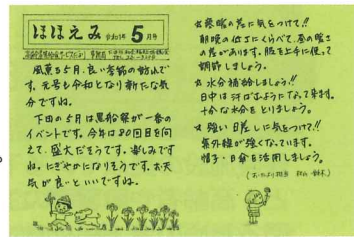 ほほえみ 令和1年 5月号
風薫る5月。良い季節の到来で
す。元号も令和となり新たな気
分ですね。
下田の5月は黒船祭が一番の
イベントです。今年は80回目を向
えて、盛大だそうです。楽しみです
ね。にぎやかになりそうです。お天
気が良いといいですね。
☆寒暖の差に気をつけて!!
朝晩の低さにくらべて、昼の暖さ
の差があります。服を上手に使って
調節しましょう。
☆水分補給しましょう!!
日中は汗ばむようになって来ます。
十分な水分をとりましょう。
☆強い日差しに気をつけて!!
紫外線が強くなっています。
帽子・日傘を活用しましょう。
(おたより担当